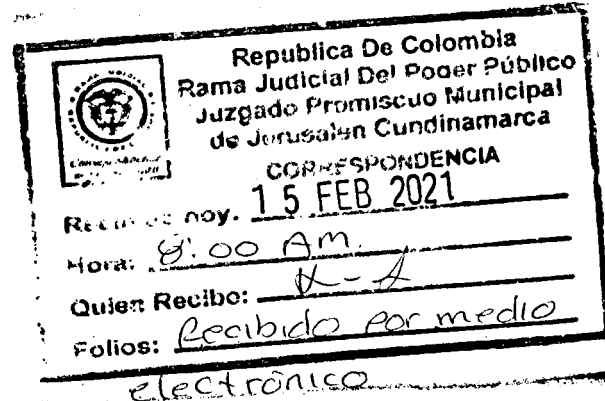 Republica De Colombia
Rama Judicial Del Poder Público
Juzgado Promiscuo Municipal
de Jerusalen Cundinamarca
CORRESPONDENCIA
hoy. 15 FEB 2021
Hora: 8:00 Am.
Quien Recibo:
Folios: Recibido por medio
electrónico